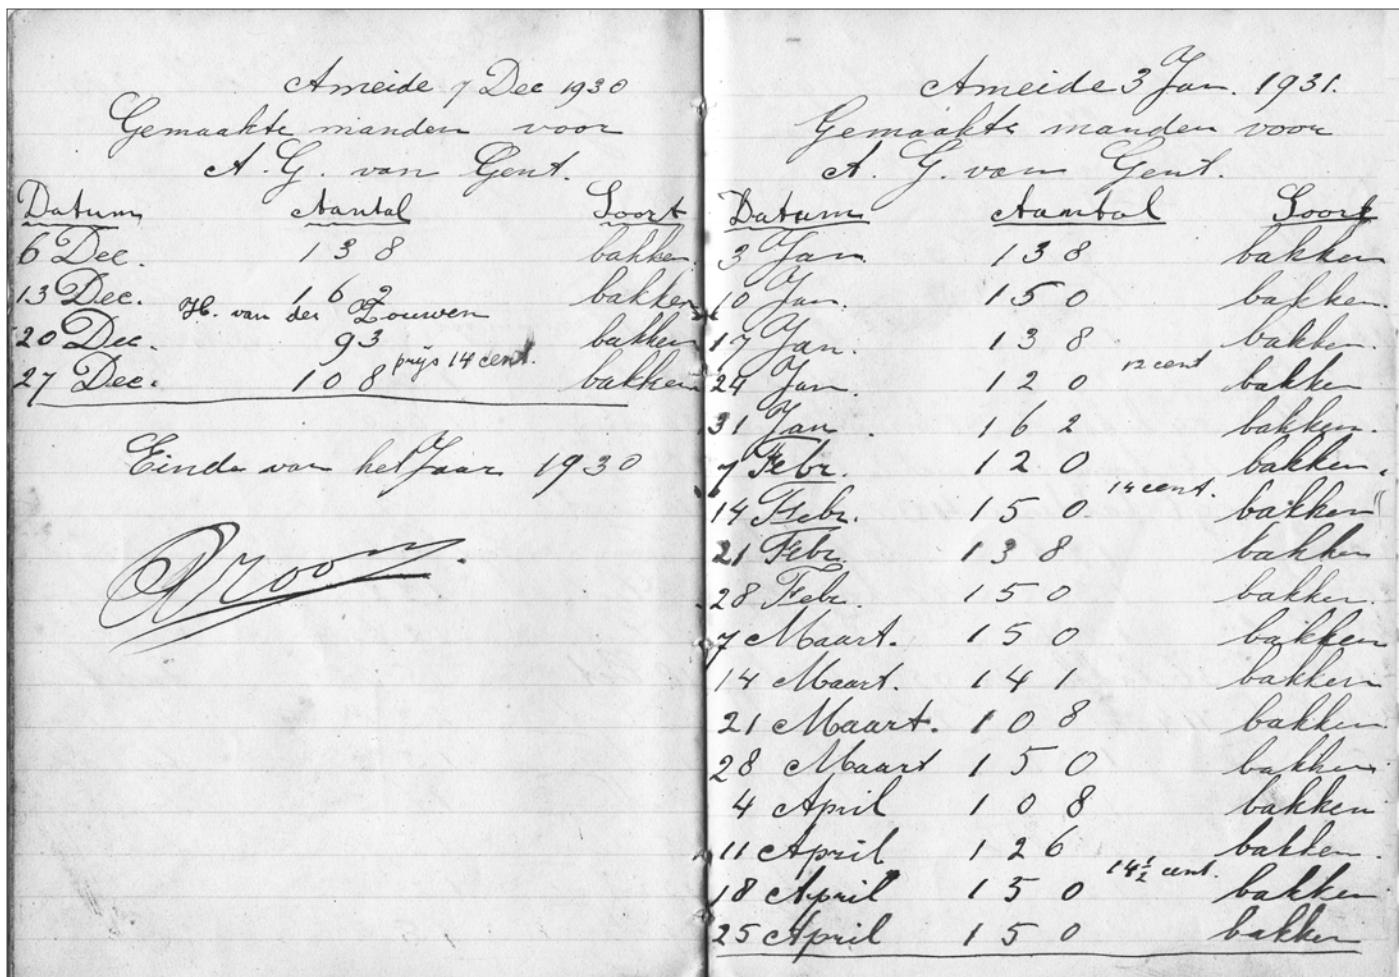 Ameide 7 Dec 1930
Gemaakte manden voor
A. G. van Gent.
Datum Aantal Soort
6 Dec. 138 bakken.
13 Dec. 162 bakken
H. van der Zouwen
20 Dec. 93 bakken
prijs 14 cent.
27 Dec. 108 bakken
Einde van het Jaar 1930
Ameide 3 Jan. 1931.
Gemaakte manden voor
A. G. van Gent.
Datum Aantal Soort
3 Jan. 138 bakken
10 Jan. 150 bakken.
17 Jan. 138 bakken.
12 cent
24 Jan. 120 bakken
31 Jan. 162 bakken.
7 Febr. 120 bakken.
14 cent.
14 Febr. 150 bakken "
21 Febr. 138 bakken
28 Febr. 150 bakken.
7 Maart. 150 bakken
14 Maart. 141 bakken
21 Maart. 108 bakken
28 Maart 150 bakken
4 April 108 bakken
11 April 126 bakken.
14½ cent.
18 April 150 bakken
25 April 150 bakken